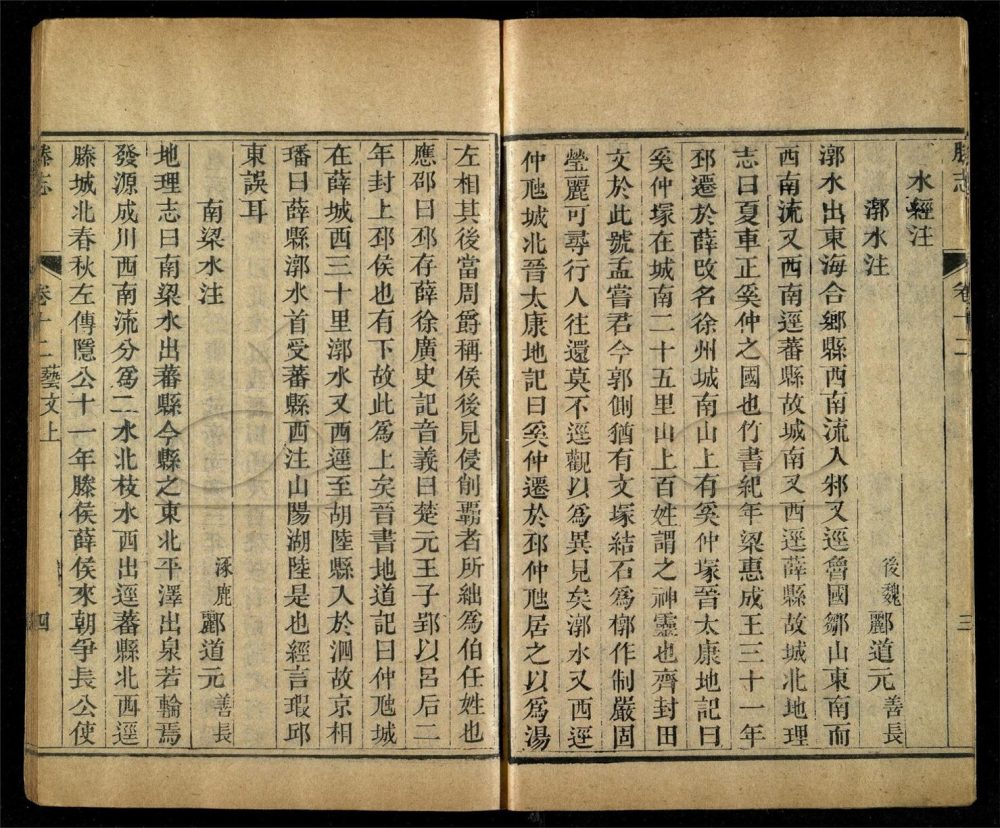 滕志 卷十二 三
水經注
漷水注 後魏 酈道元 善長
漷水出東海合鄉縣西南流入邾又逕魯國鄒山東南而
西南流又西南逕蕃縣故城南又西逕薛縣故城北地理
志曰夏車正奚仲之國也竹書紀年梁惠成王三十一年
邳遷於薛改名徐州城南山上有奚仲塚晉太康地記曰
奚仲塚在城南二十五里山上百姓謂之神靈也齊封田
文於此號孟嘗君今郭側猶有文塚結石為槨作制嚴固
瑩麗可尋行人往還莫不逕觀以為異見矣漷水又西逕
仲虺城北晉太康地記曰奚仲遷於邳仲虺居之以為湯
左相其後當周爵稱侯後見侵削霸者所絀為伯任姓也
應邵曰邳存薛徐廣史記音義曰楚元王子郢以呂后二
年封上邳侯也有下故此為上矣晉書地道記曰仲虺城
在薛城西三十里漷水又西逕至胡陸縣入於泗故京相
璠曰薛縣漷水首受蕃縣西注山陽湖陸是也經言瑕邱
東誤耳
南梁水注 涿鹿 酈道元 善長
地理志曰南梁水出蕃縣今縣之東北平澤出泉若輪焉
發源成川西南流分為二水北枝水西出逕蕃縣北西逕
滕城北春秋左傳隱公十一年滕侯薛侯來朝爭長公使
滕志 卷十二 藝文上 四